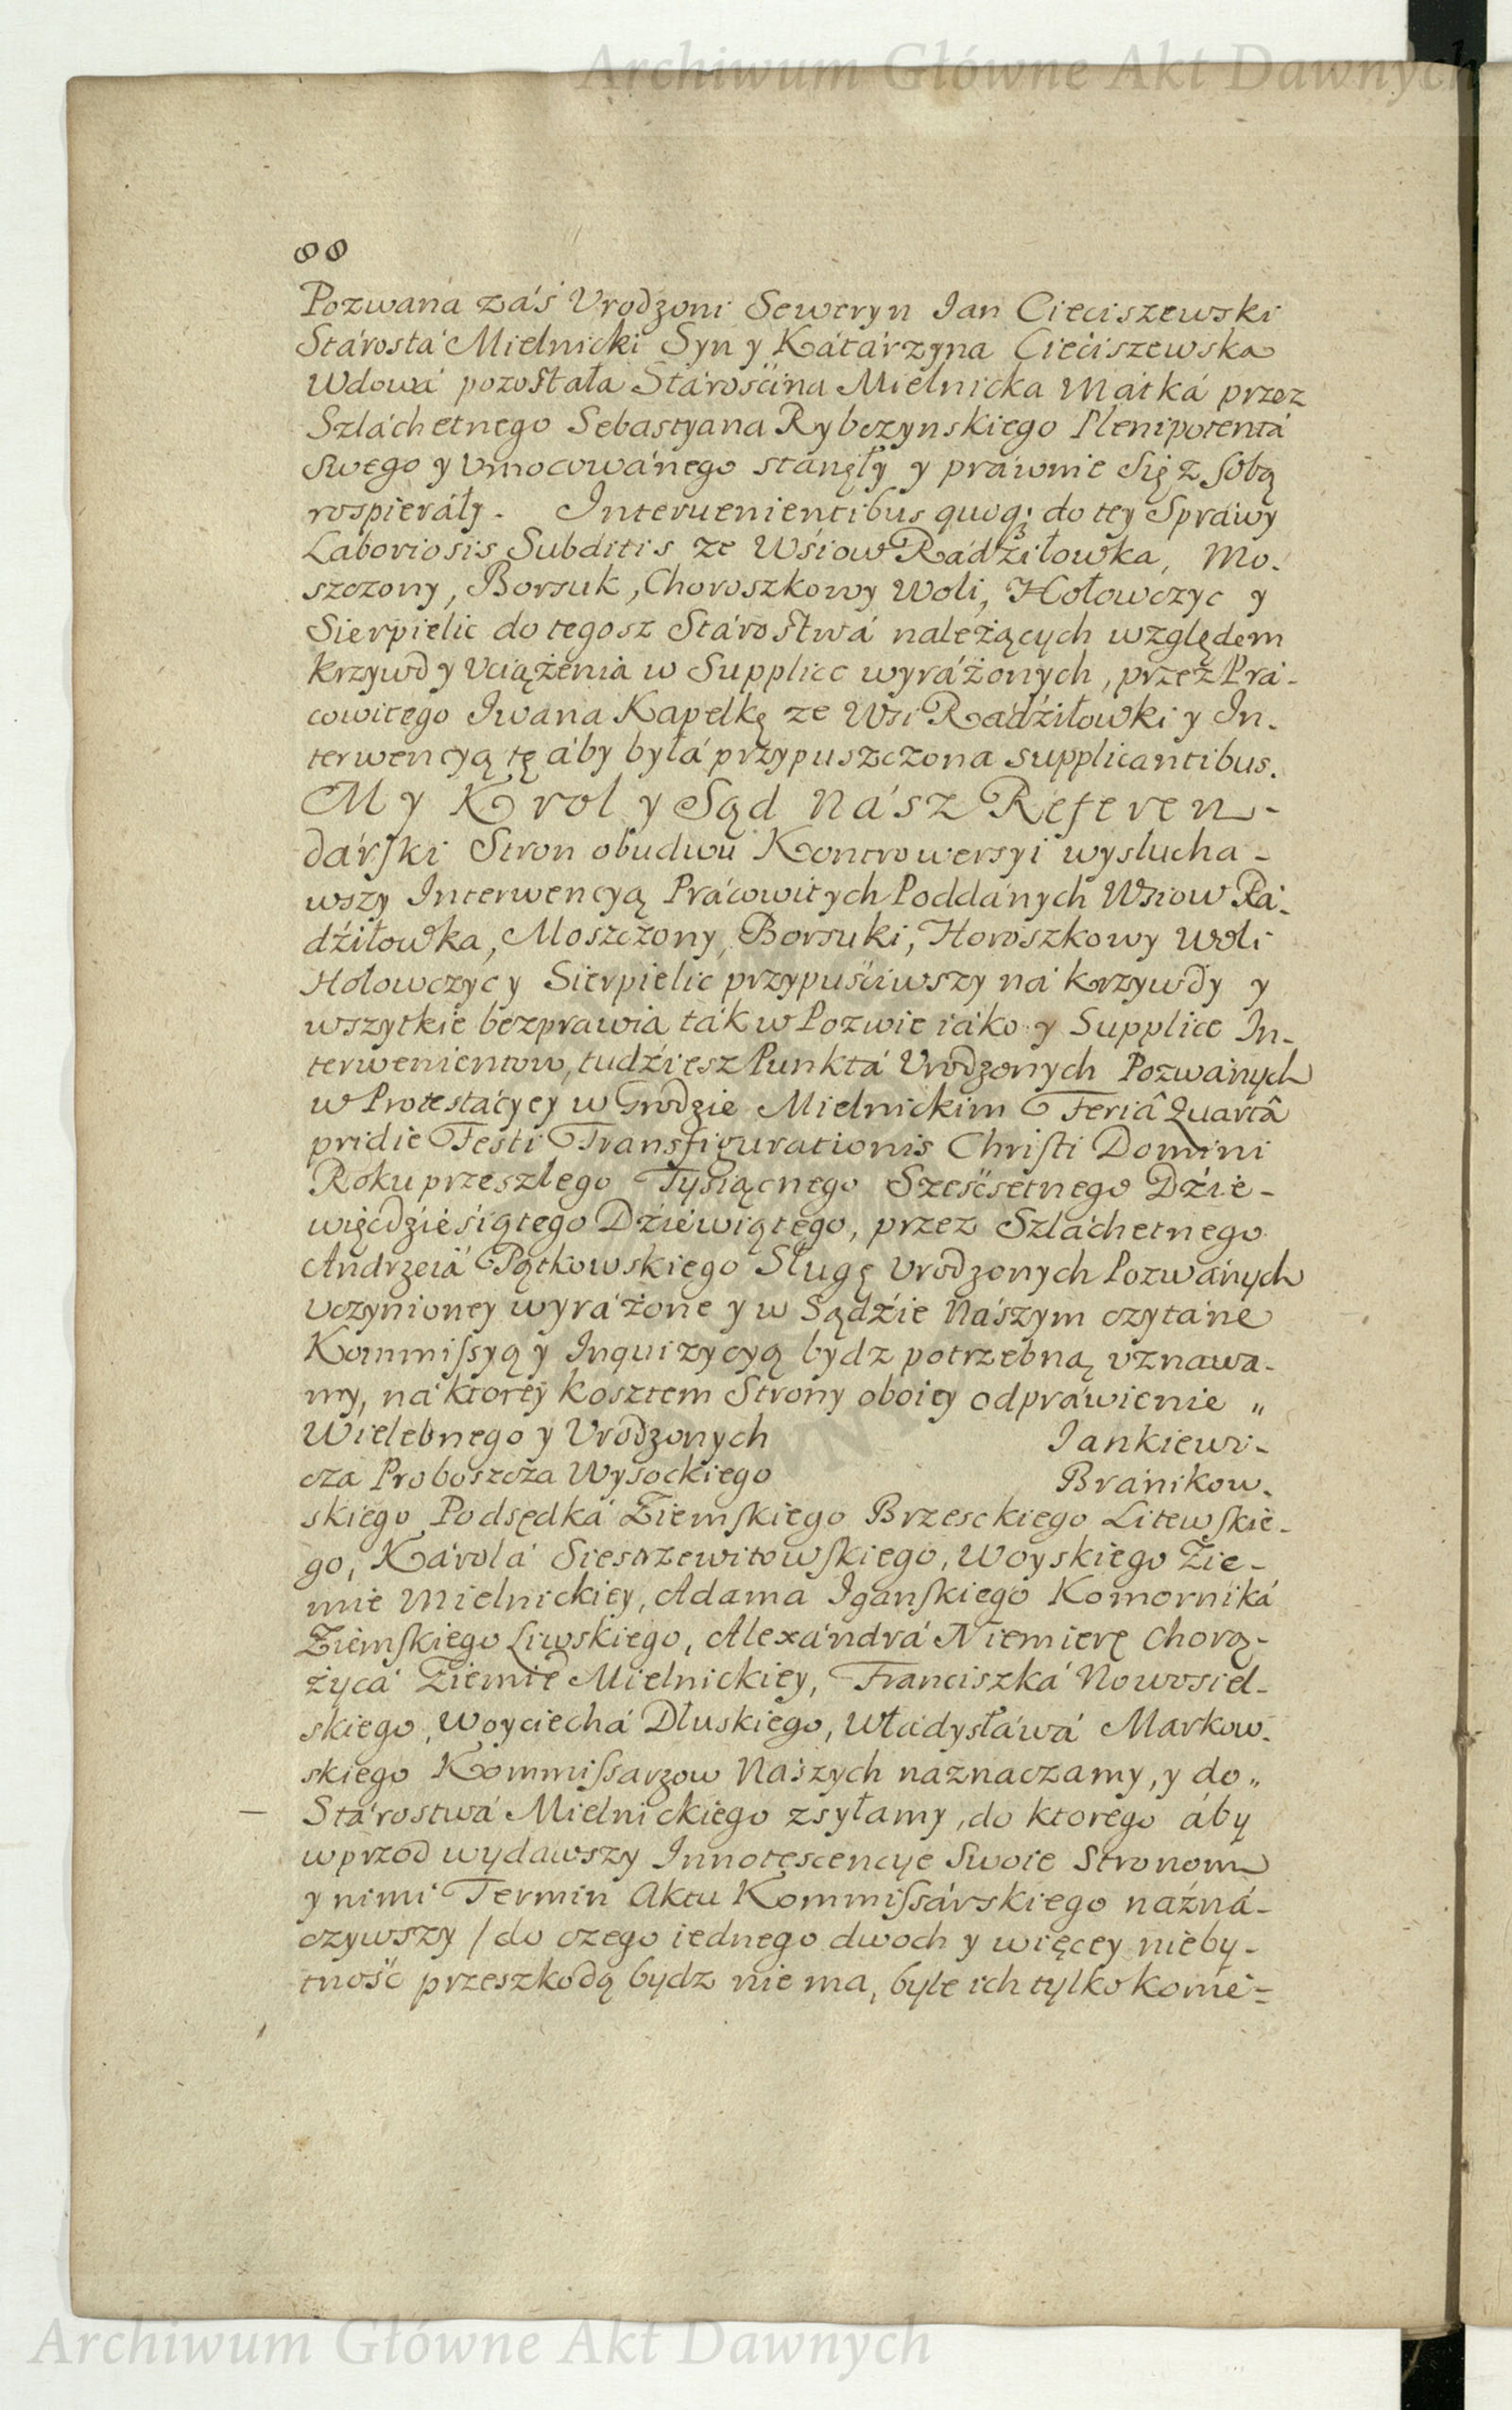 Archiwum Główne Akt Dawnych
88
Pozwana záś Vrodzoni Seweryn Ian Cieciszewski
Stárostá Mielnicki Syn y Kátárzyna Cieciszewska
Wdowá pozostała Stárościna Mielnicka Matká przez
Szláchetnego Sebastyana Rybczynskiego Plenipotentá
swego y vmocowánego stanęły y práwnie się z sobą
rospieráły. Interuenientibus quoq; do tey Spráwy
Laboriosis Subditis ze Wśiow Rádźiłowka, Mo-
szczony, Borsuk, Choroszkowy Woli, Hołowczyc y
Sierpielic do tegosz Stárostwá należących względem
krzywd y vciążenia w Supplice wyráżonych, przez Prá-
cowitego Iwana Kapelkę ze Wsi Rádźiłowki y In-
terwencyą tę áby byłá przypuszczona supplicantibus.
My Krol y Sąd Nász Referen-
dárski Stron obudwu Kontrowersyi wysłucha-
wszy Interwencyą Prácowitych Poddánych Wsiow Rá-
dźiłowka, Moszczony, Borsuki, Horoszkowy Woli
Hołowczyc y Sierpielic przypuściwszy ná krzywdy y
wszytkie bezprawia ták w Pozwie iáko y Supplice In-
terwenientow, tudźiesz Punktá Vrodzonych Pozwánych
w Protestácyey w Grodzie Mielnickim Feriâ Quartâ
pridie Festi Transfigurationis Christi Domini
Roku przeszłego Tysiącnego Sześćsetnego Dźie-
więcdźieśiątego Dźiewiątego, przez Szláchetnego
Andrzeiá Pątkowskiego Sługę Vrodzonych Pozwánych
vczynioney wyráżone y w Sądźie Nászym czytáne
Kommissyą y Inquizycyą bydz potrzebną vznawa-
my, ná ktorey kosztem Strony oboiey odpráwienie „
Wielebnego y Vrodzonych Iankiewi-
cza Proboszcza Wysockiego Bránikow-
skiego Podsędká Ziemskiego Brzesckiego Litewskie-
go, Károlá Siestrzewitowskiego, Woyskiego Zie-
mie Mielnickiey, Adama Iganskiego Komorniká
Ziemskiego Liwskiego, Alexándrá Niemierę Chorą-
życá Ziemie Mielnickiey, Franciszká Nowosiel-
skiego, Woyciechá Dłuskiego, Władysławá Markow-
skiego Kommissarzow Nászych náznaczamy, y do „
Stárostwá Mielnickiego zsyłamy, do ktorego áby
wprzod wydawszy Innotescencye Swoie Stronom
y nimi Termin Aktu Kommissárskiego názná-
czywszy / do czego iednego dwoch y więcey nieby-
tność przeszkodą bydz nie ma, byle ich tylko konie=
Archiwum Główne Akt Dawnych